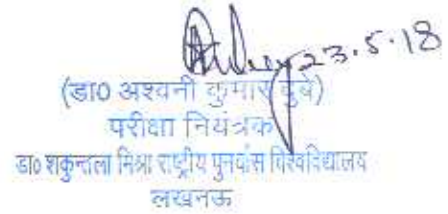 23.5.18
(डा0 अश्वनी कुमार दुबे)
परीक्षा नियंत्रक
डा0 शकुन्तला मिश्रा राष्ट्रीय पुनर्वास विश्वविद्यालय
लखनऊ